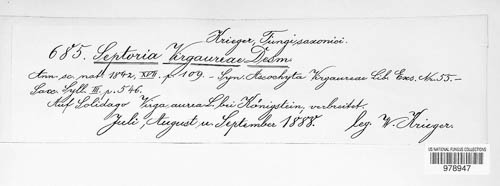 Krieger, Fungi saxonici.
685. Septoria Virgaureae Desm.
Ann. sc. nat. 1842, XVII. p. 109. - Syn. Ascochyta Virgaureae Lib. Exs. No. 55.
Sacc. Syll. III. p. 546.
Auf Solidago Virga aurea L. bei Königstein, verbreitet.
Juli, August u. September 1888. leg. W. Krieger.
US NATIONAL FUNGUS COLLECTIONS
978947